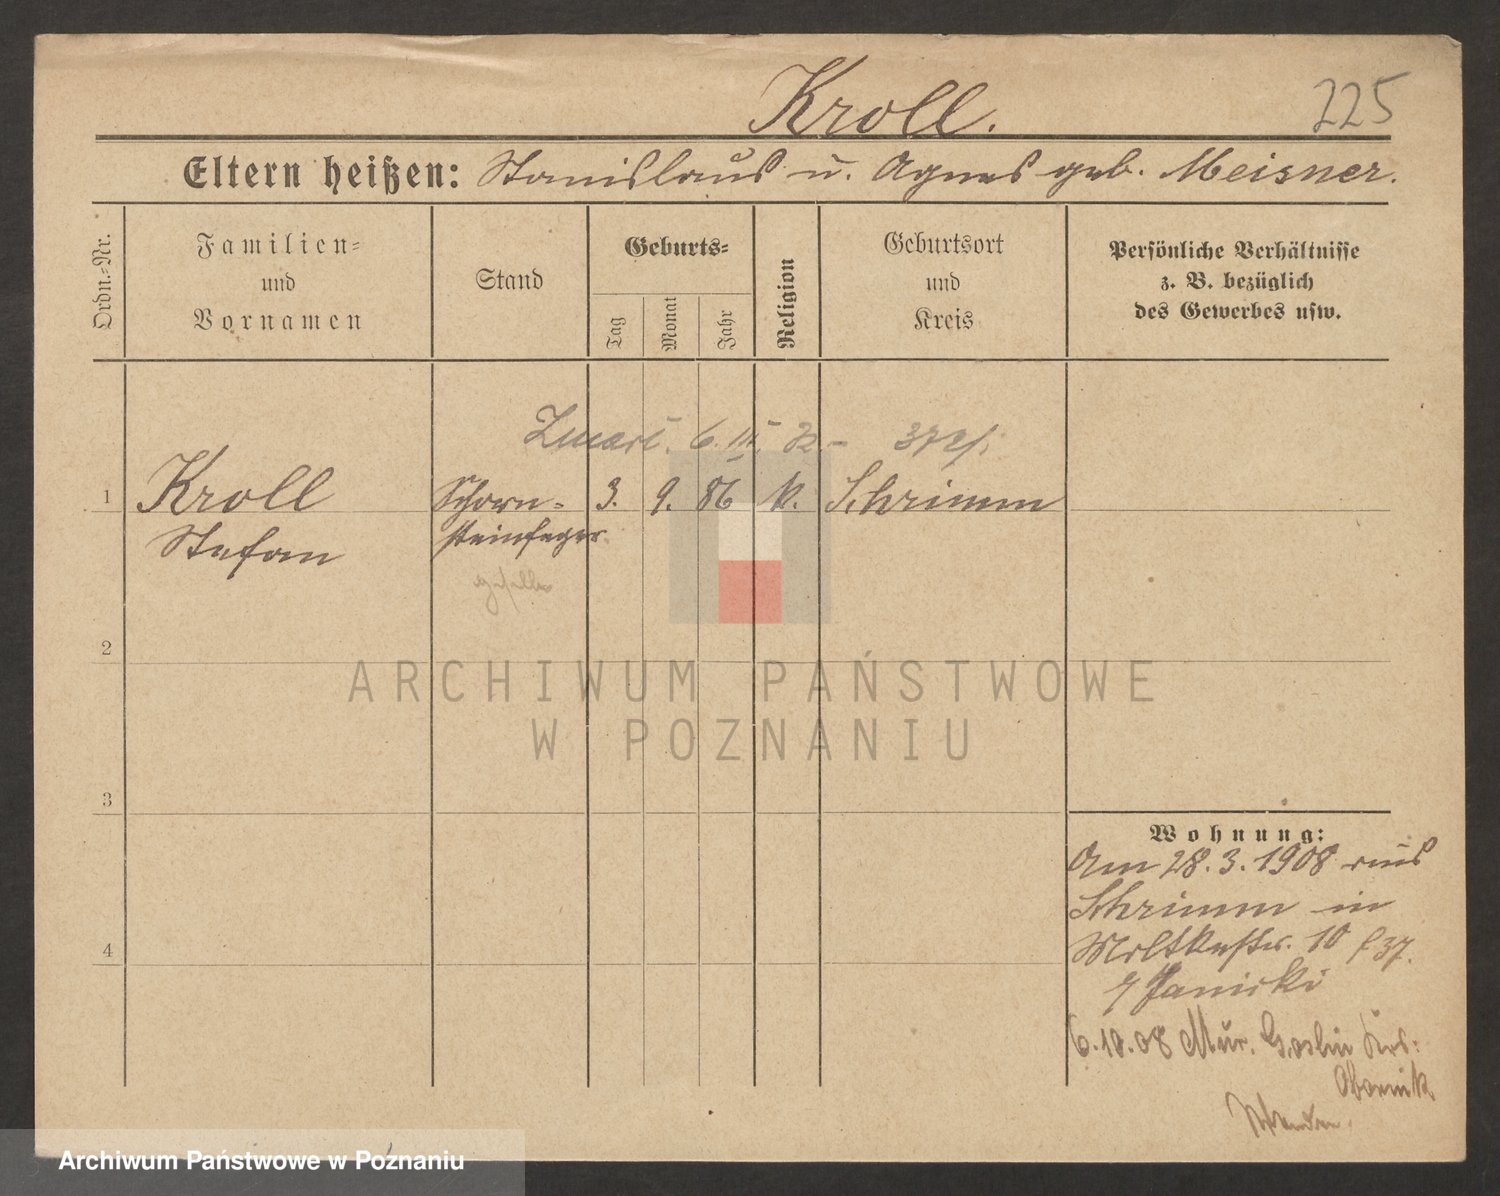 Kroll.
225
Eltern heißen: Stanislaus u. Agnes geb. Meisner.
Ordn.-Nr.
Familien-
und
Vornamen
Stand
Geburts-
Tag
Monat
Jahr
Religion
Geburtsort
und
Kreis
Persönliche Verhältnisse
z. B. bezüglich
des Gewerbes usw.
Zmarł. 6. III.
1 Kroll Schorn- 3. 9. 86 k. Schrimm
Stefan steinfeger
geselle
2
ARCHIWUM PAŃSTWOWE
W POZNANIU
3
Wohnung:
Am 28.3.1908 aus
Schrimm in
Moltkestr. 10
4
Janicki
6.10.08 Mur. Goslin Krs:
Obornik
Archiwum Państwowe w Poznaniu